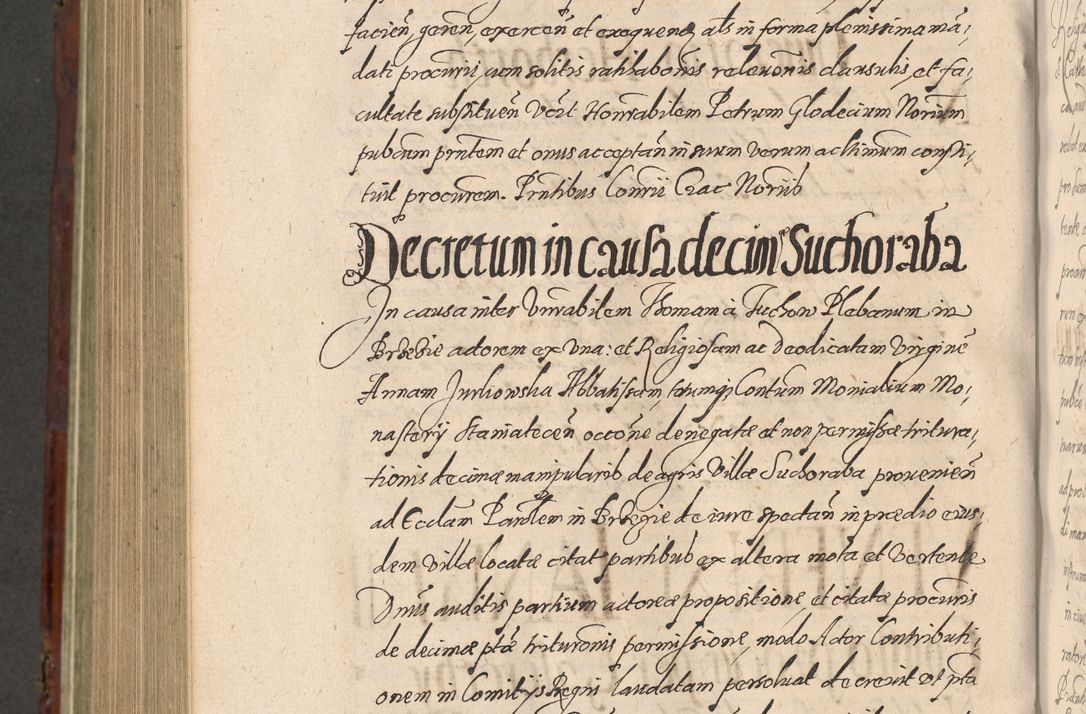 facien̄, geren̄, exercen̄ et exequen̄, als in forma plenissima ma,
dati procurij cum solitis ratihabōnis relevōnis clausulis, et fa,
cultate substituen̄ Vc̄it Honrabilem Petrum Glodecium Norium
pubcum prn̄tem et onus acceptan̄ in suum verum ac ltimum consti,
tuit procurem. Prn̄tibus Conrii Crac Noriib
Decretum in causa decim Suchoraba
In causa inter Vnrabilem Thomam à Tuchow Plebanum in
Brzezie actorem ex una: et Religiosam ac Deodicatam Virginē
Annam Jurkowska Abbatissam, totumq Contum Monialium Mo,
nasterij Staniatecen̄ occōne denegatæ et non permissæ tritura,
tionis decimæ manipularib de agris Villæ Suchoraba provenien̄
ad Ecclām Parolem in Brzezie de iure spectan̄ in prædio eius,
dem villæ locatæ citat partibus ex altera mota et vertente
Dn̄us auditis partium actoreæ propositione, et citatæ procuris
de decimæ ptæ trituronis permissione, modo Actor Contributi,
onem in Comitijs Regni laudatam persolvat decrevit ut pta